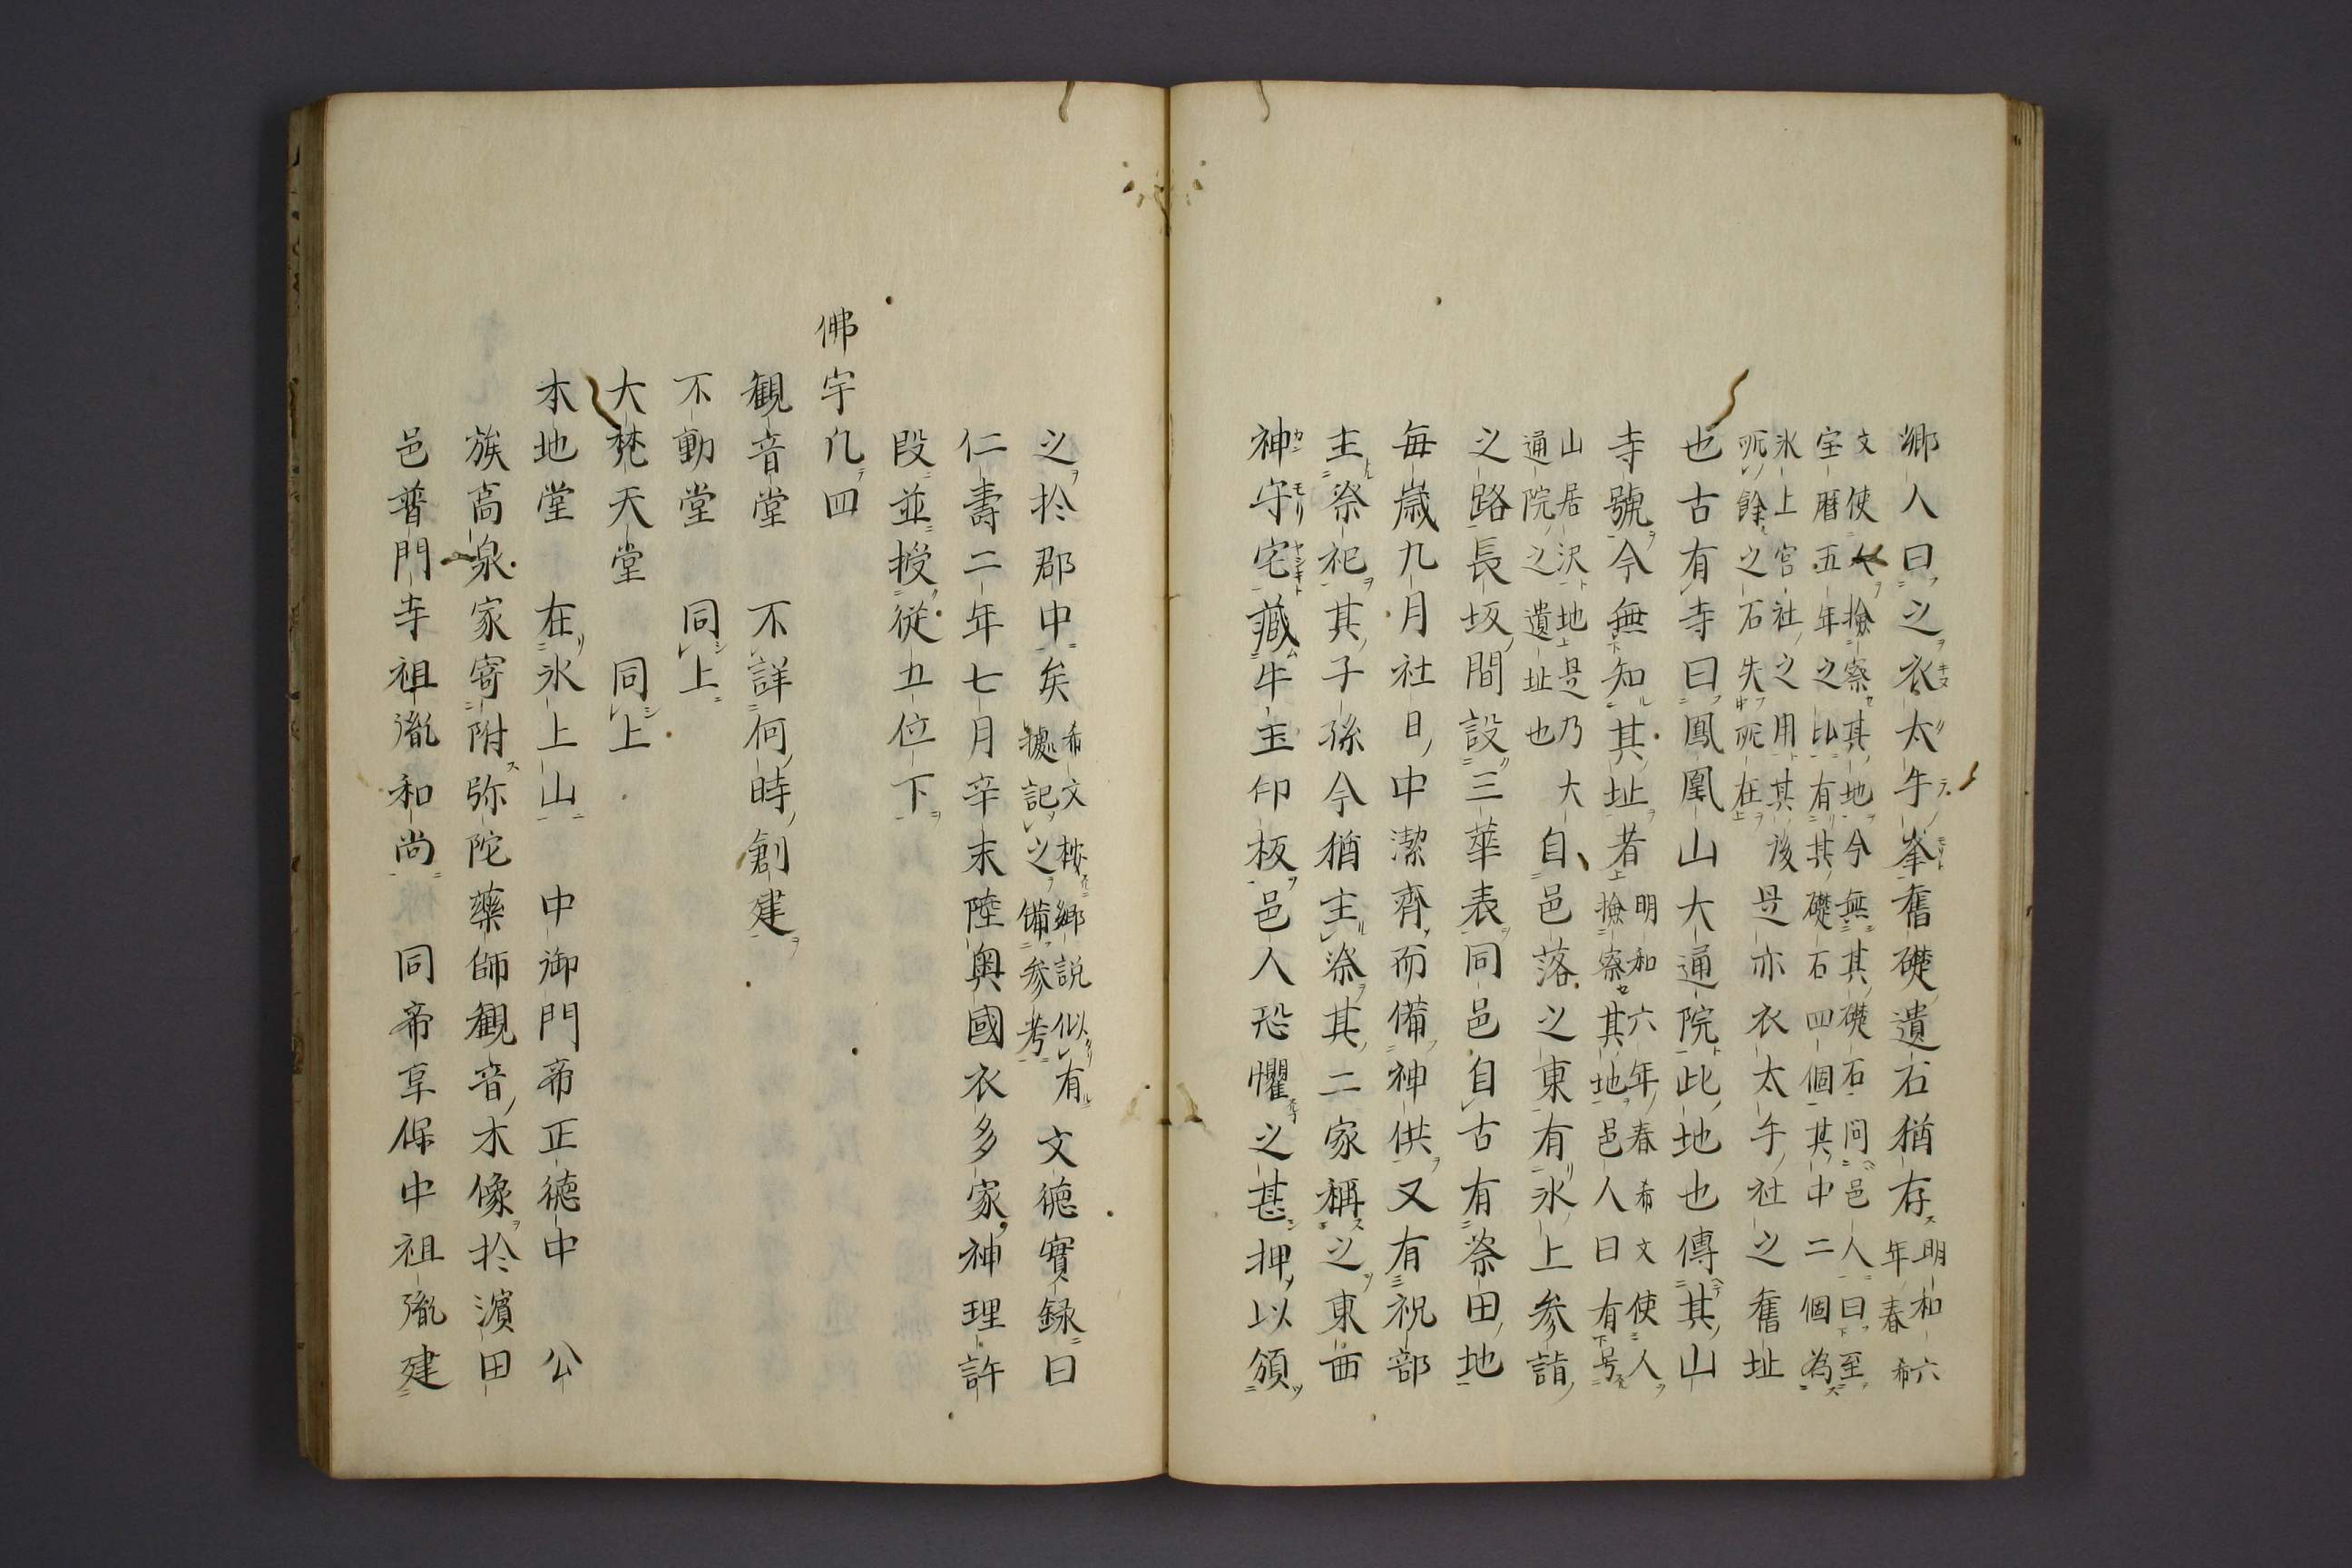 郷人曰之衣太手峯舊礎遺石猶存明和六年春希
文使人撿察其地今無其礎石問邑人曰至宝暦五年之比有其礎石四個其中二個為
氷上宮社之用其後所餘之石失所在是亦衣太手社之舊址
也古有寺曰鳳凰山大通院此地也傳其山
寺號今無知其址者明和六年春希文使人撿察其地邑人曰有号
山居沢地是乃大通院之遺址也自邑落之東有氷上参詣
之路長坂間設三華表同邑自古有祭田地
毎歳九月社日中潔齊而備神供又有祝部
主祭祀其子孫今猶主祭其二家稱之東西
神守宅藏牛玉印板邑人恐懼之甚押以頒
之於郡中矣希文按郷説似有據記之備参考文徳實録曰
仁壽二年七月辛未陸奥國衣多家神理許
段並授從五位下
佛宇凡四
觀音堂　不詳何時創建
不動堂　同上
大梵天堂　同上
本地堂　在氷上山　中御門帝正徳中　公
族高泉家寄附弥陀藥師觀音木像於濱田
邑普門寺祖胤和尚　同帝享保中祖胤建